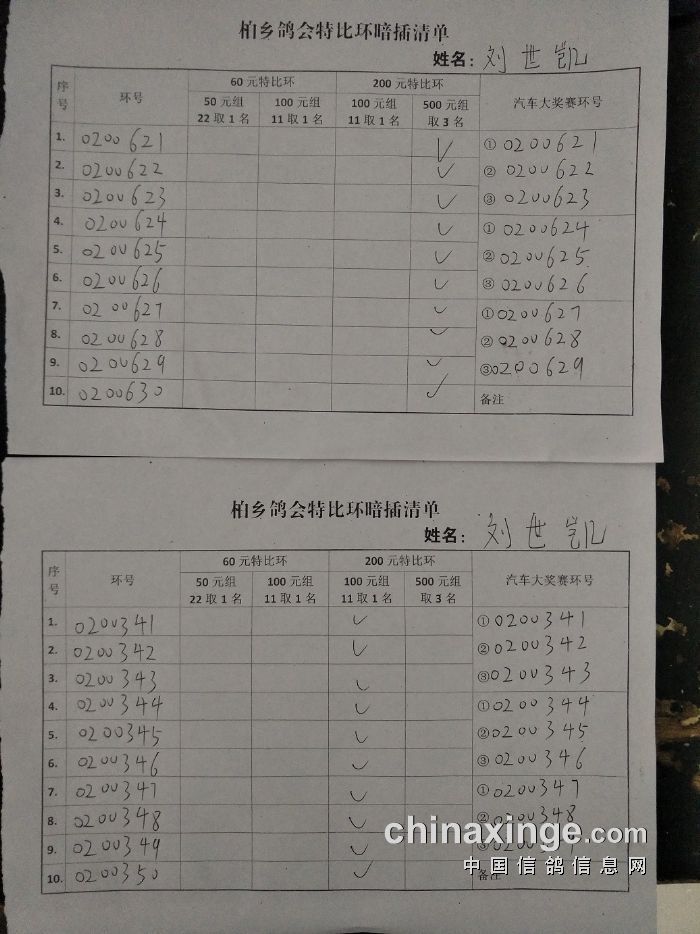 柏乡鸽会特比环暗插清单
姓名：刘世凯
序号 环号 60元特比环 200元特比环 汽车大奖赛环号
50元组 22取1名 100元组 11取1名 100元组 11取1名 500元组 取3名
1. 0200621 ✓ ①0200621
2. 0200622 ✓ ②0200622
3. 0200623 ✓ ③0200623
4. 0200624 ✓ ①0200624
5. 0200625 ✓ ②0200625
6. 0200626 ✓ ③0200626
7. 0200627 ✓ ①0200627
8. 0200628 ✓ ②0200628
9. 0200629 ✓ ③0200629
10. 0200630 ✓ 备注
柏乡鸽会特比环暗插清单
姓名：刘世凯
序号 环号 60元特比环 200元特比环 汽车大奖赛环号
50元组 22取1名 100元组 11取1名 100元组 11取1名 500元组 取3名
1. 0200341 ✓ ①0200341
2. 0200342 ✓ ②0200342
3. 0200343 ✓ ③0200343
4. 0200344 ✓ ①0200344
5. 0200345 ✓ ②0200345
6. 0200346 ✓ ③0200346
7. 0200347 ✓ ①0200347
8. 0200348 ✓ ②0200348
9. 0200349 ✓
10. 0200350 ✓ 备注
chinaxinge.com
中国信鸽信息网